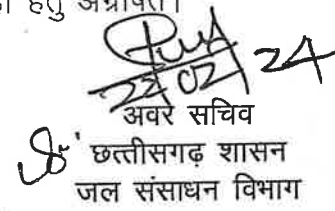 हेतु अग्रेषित।
22/02/24
अवर सचिव
छत्तीसगढ़ शासन
जल संसाधन विभाग